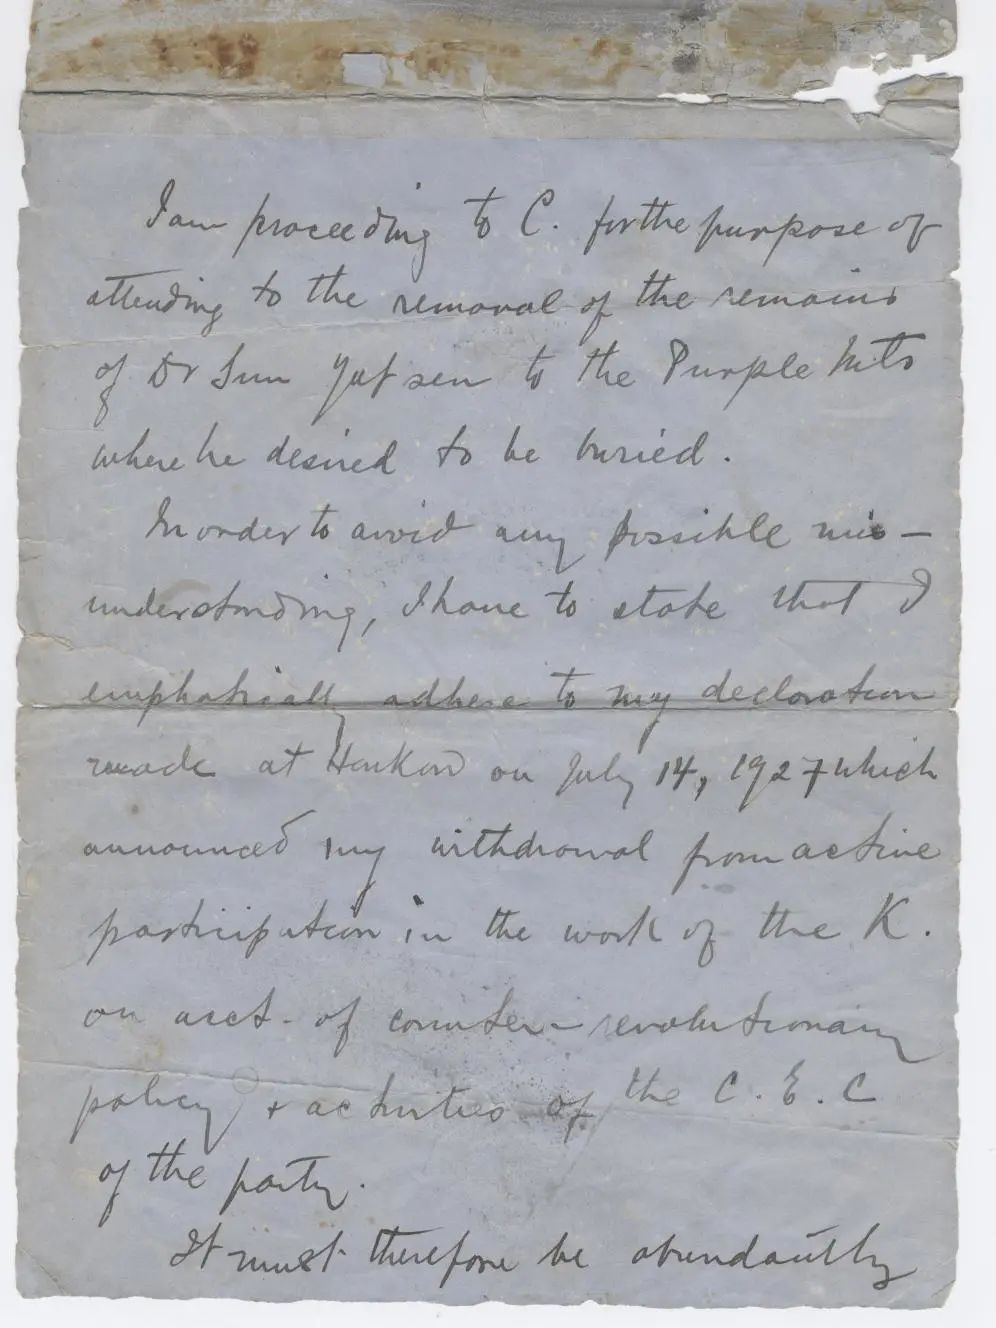 I am proceeding to C. for the purpose of
attending to the removal of the remains
of Dr Sun Yat sen to the Purple Mts
where he desired to be buried.
In order to avoid any possible mis-
understanding, I have to state that I
emphatically adhere to my declaration
made at Hankow on July 14, 1927 which
announced my withdrawal from active
participation in the work of the K.
on acct. of counter-revolutionary
policy & activities of the C. E. C
of the party.
It must therefore be abundantly